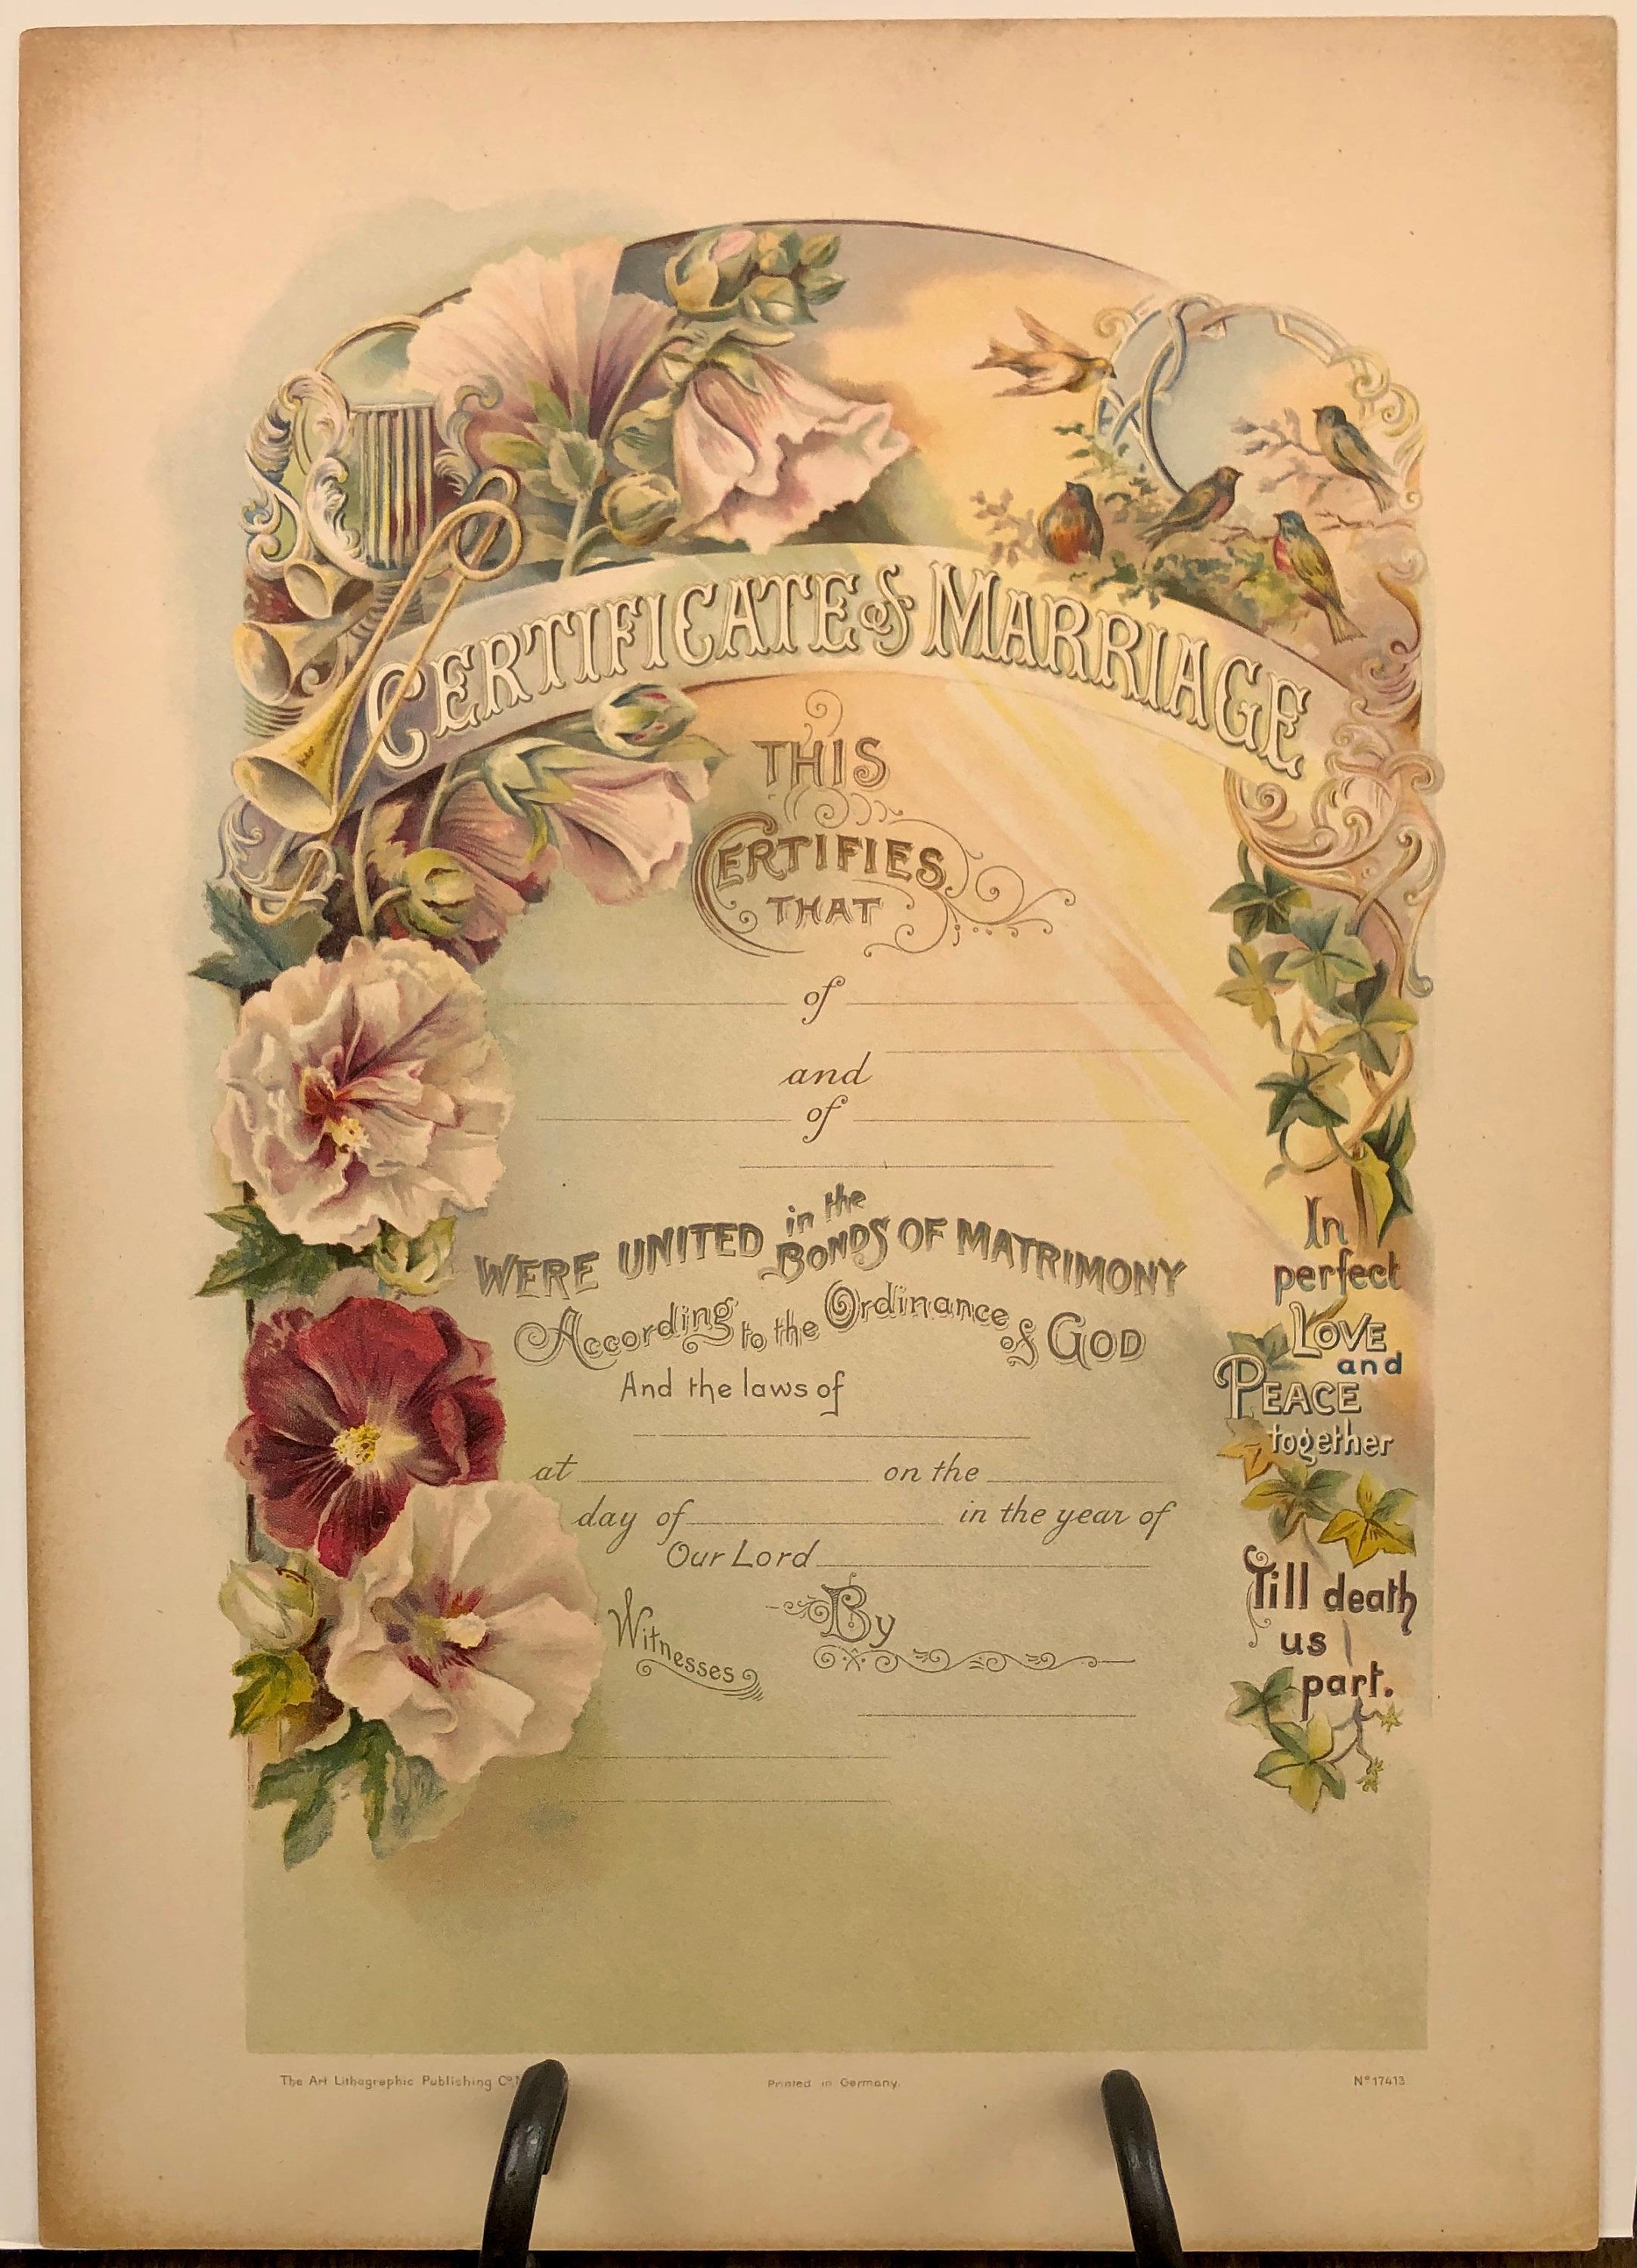 CERTIFICATE of MARRIAGE
THIS
CERTIFIES
THAT
of
and
of
WERE UNITED in the BONDS OF MATRIMONY
According to the Ordinance of GOD
And the laws of
at on the
day of in the year of
Our Lord
Witnesses
By
In
perfect
LOVE
and
PEACE
together
Till death
us
part.
The Art Lithographic Publishing Co.
Printed in Germany.
No 17413